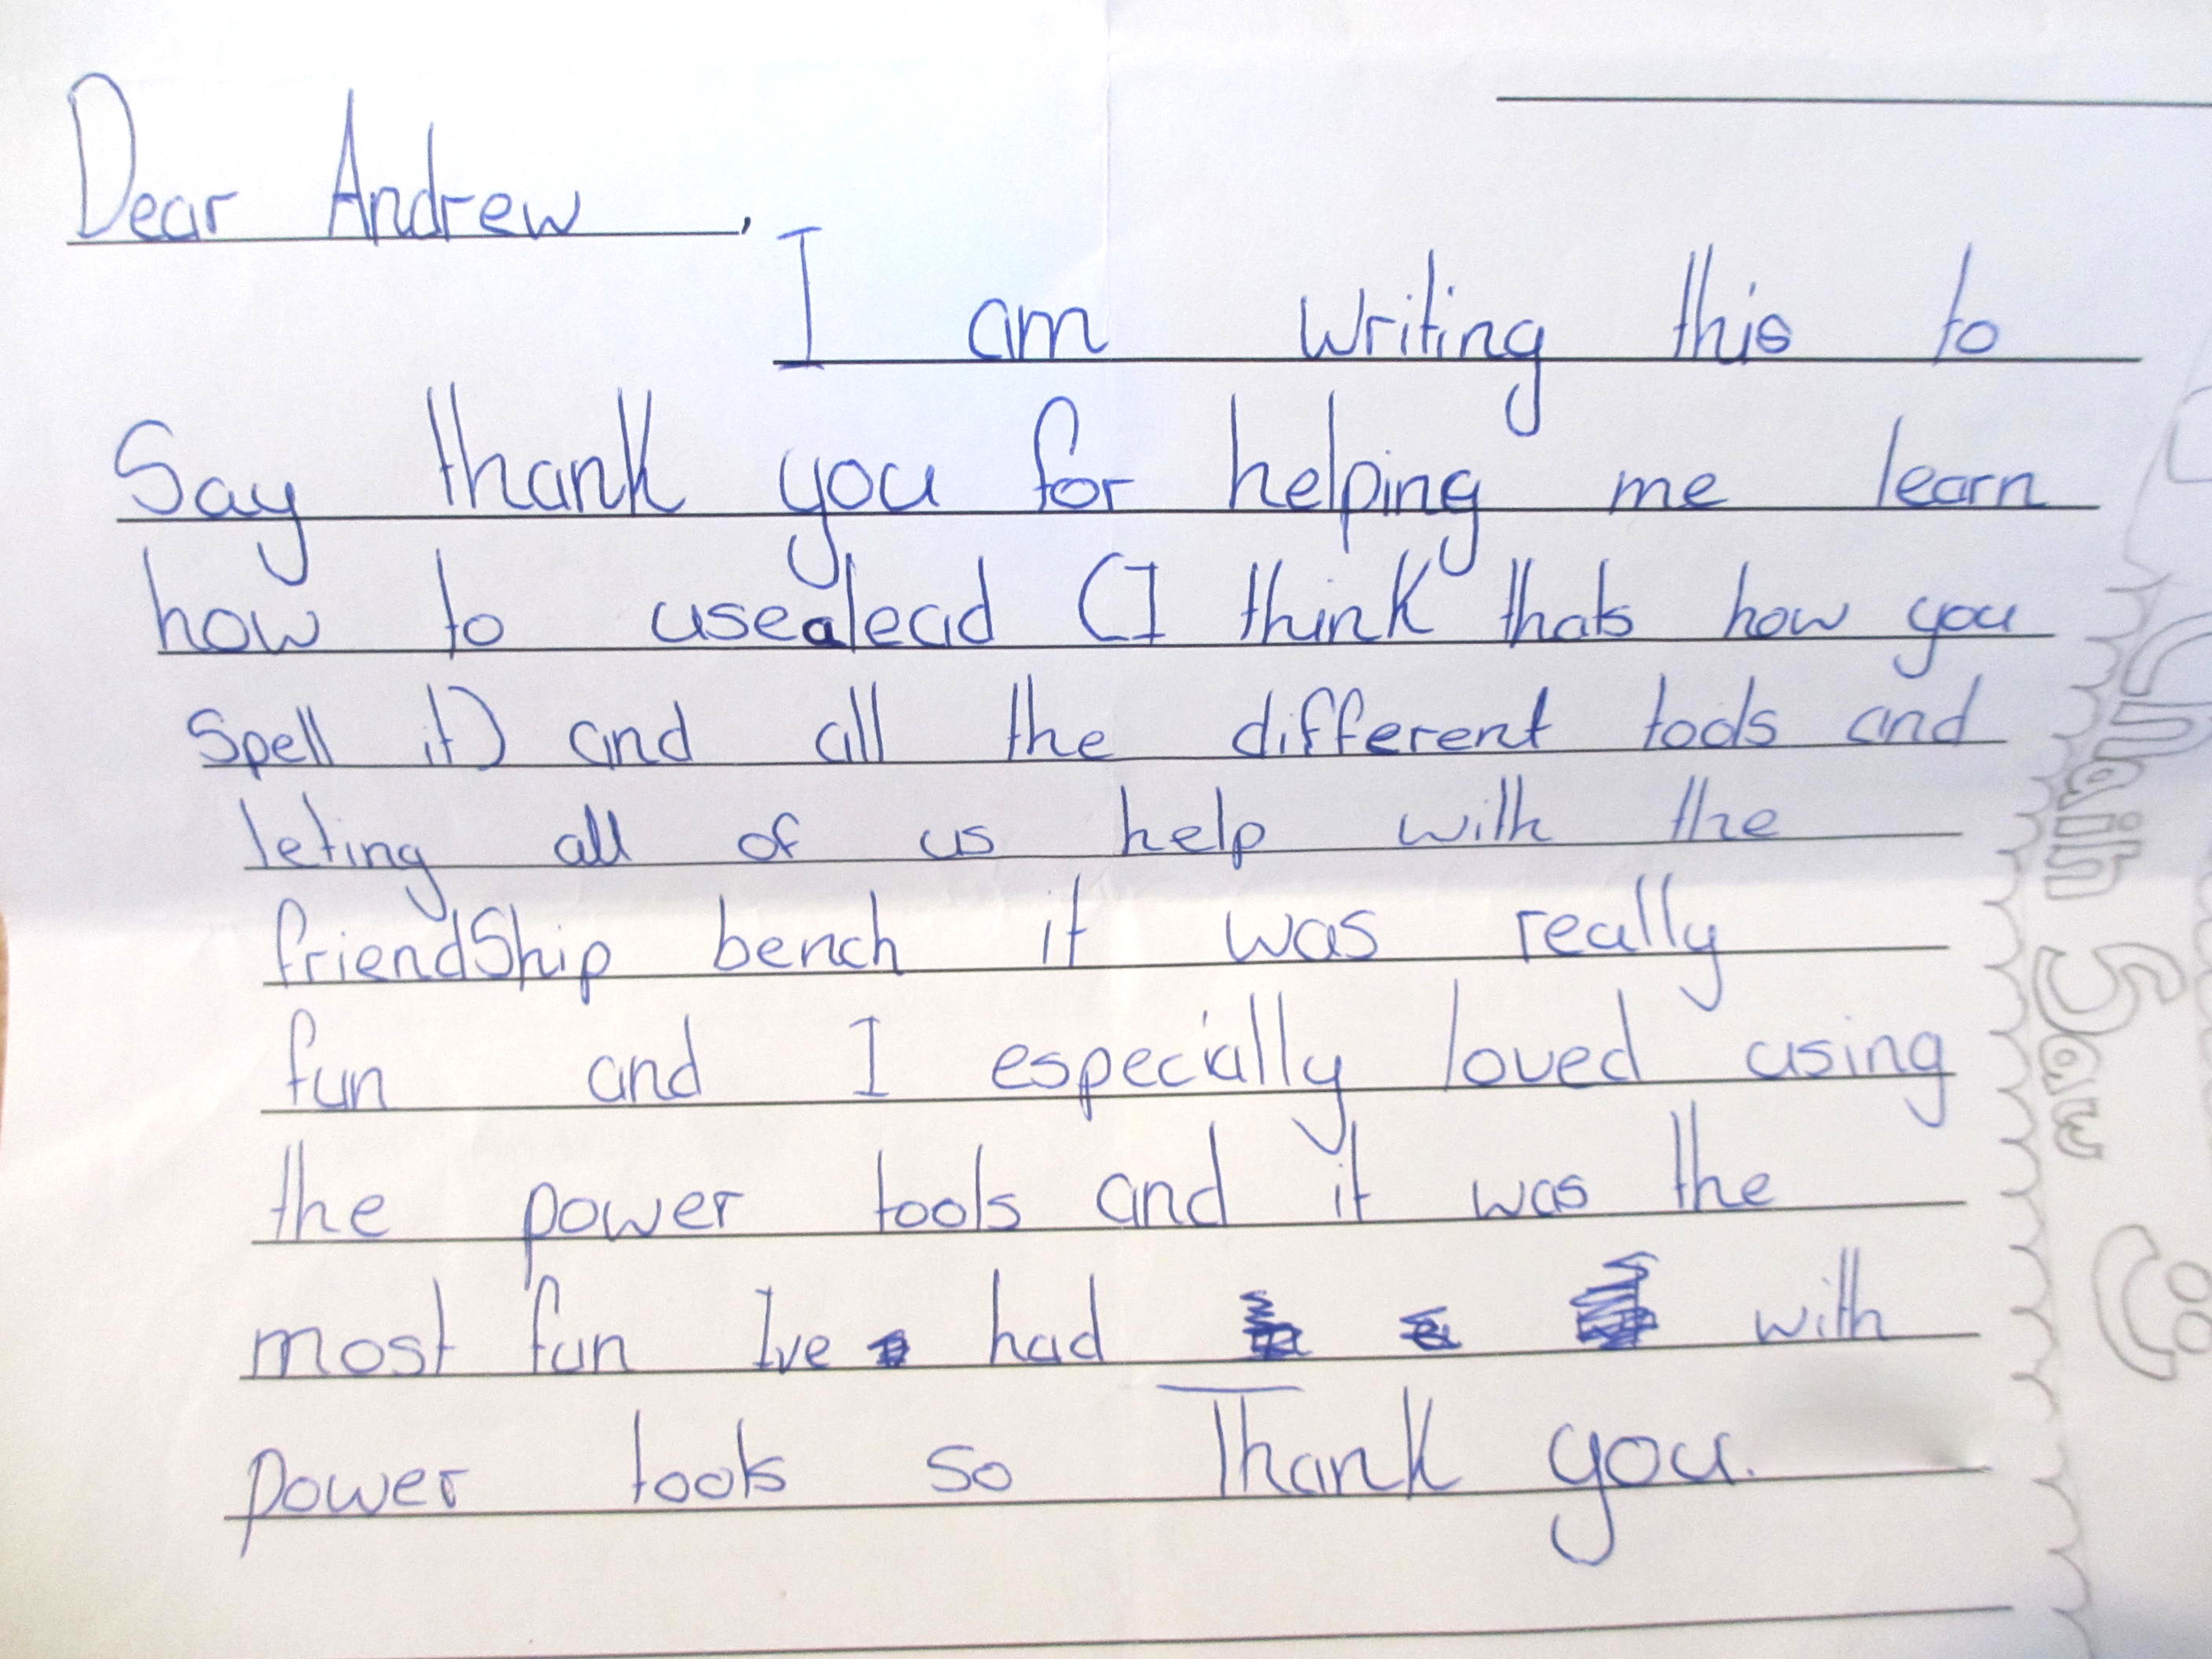 Dear Andrew,
I am writing this to
Say thank you for helping me learn
how to use a lead (I think thats how you
spell it) and all the different tools and
leting all of us help with the
friendShip bench it was really
fun and I especially loved using
the power tools and it was the
most fun Ive had with
power tools so Thank you.
Chain Saw